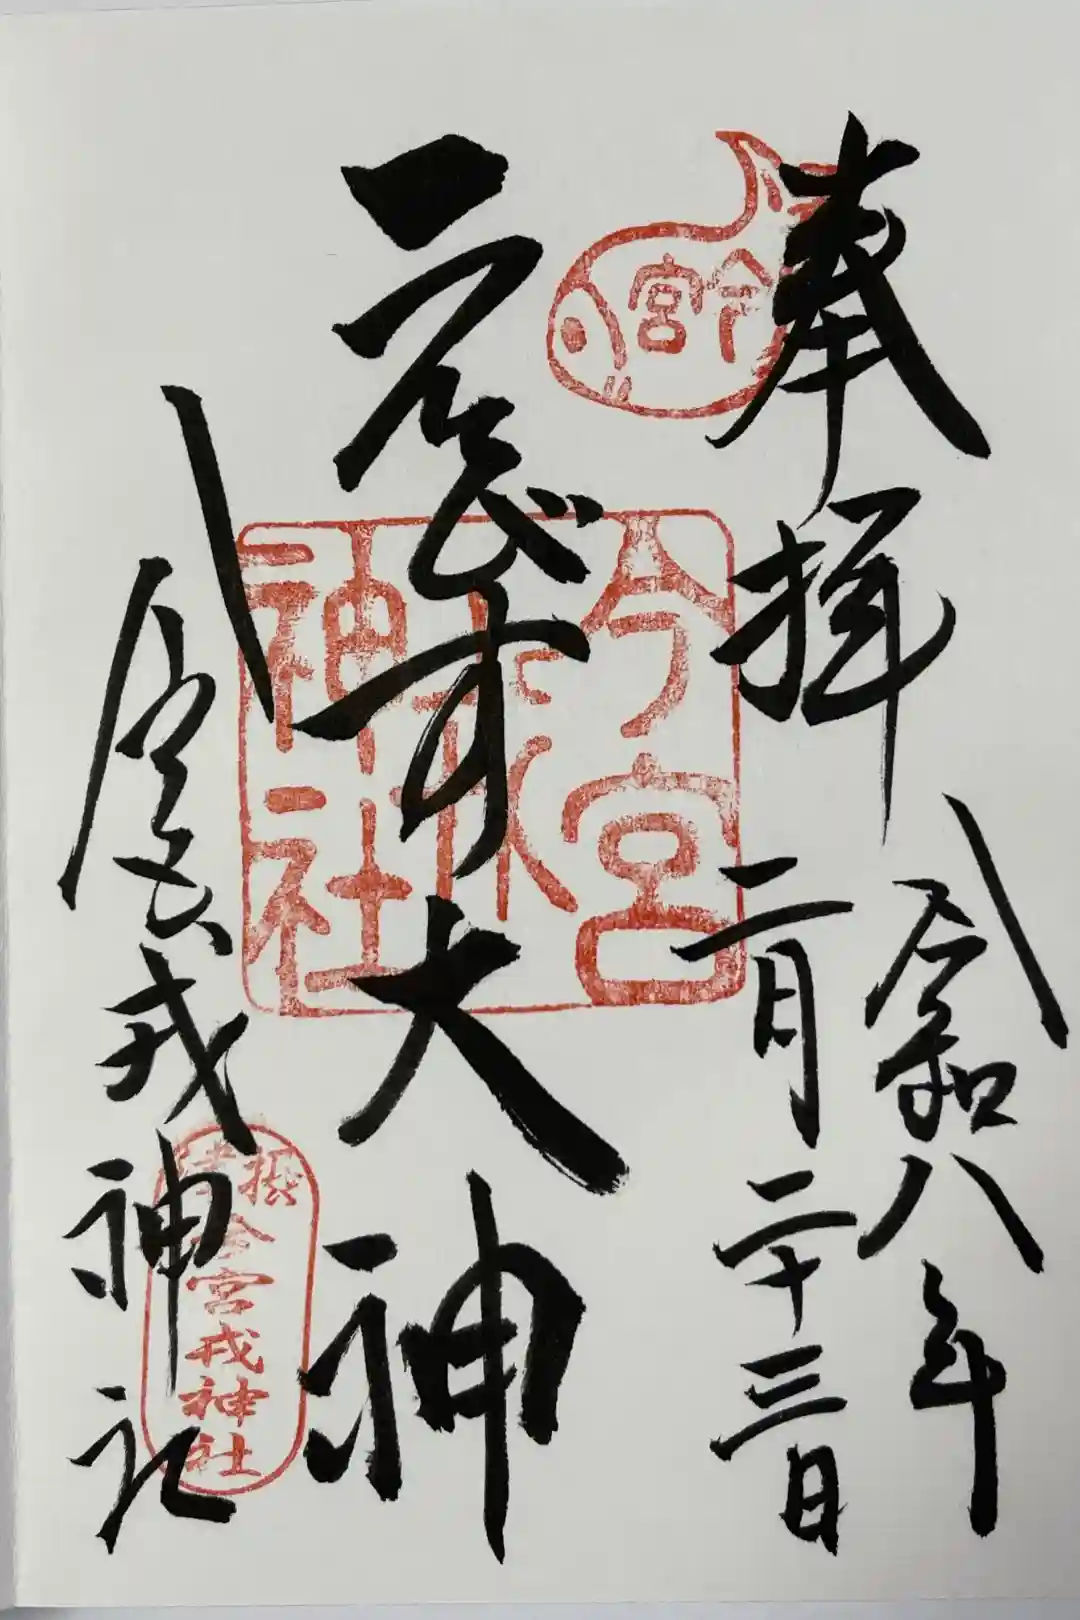 奉拝
令和八年
二月二十三日
えびす大神
今宮戎神社
今宮
今宮
戎
神社
摂津
今宮戎神社